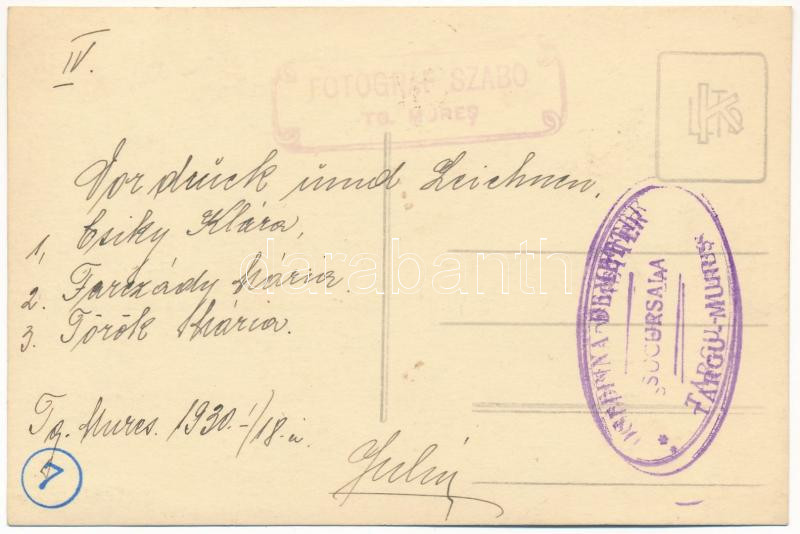 IV.
FOTOGRAF SZABO
TG. MUREȘ
Vordruck und Zeichnen.
1, Csiky Klára,
2. Farczády Mária
3. Török Mária.
darabanth
SUCURSALA
TÂRGU-MUREȘ
Tg. Mures. 1930. I/18.-á.
7